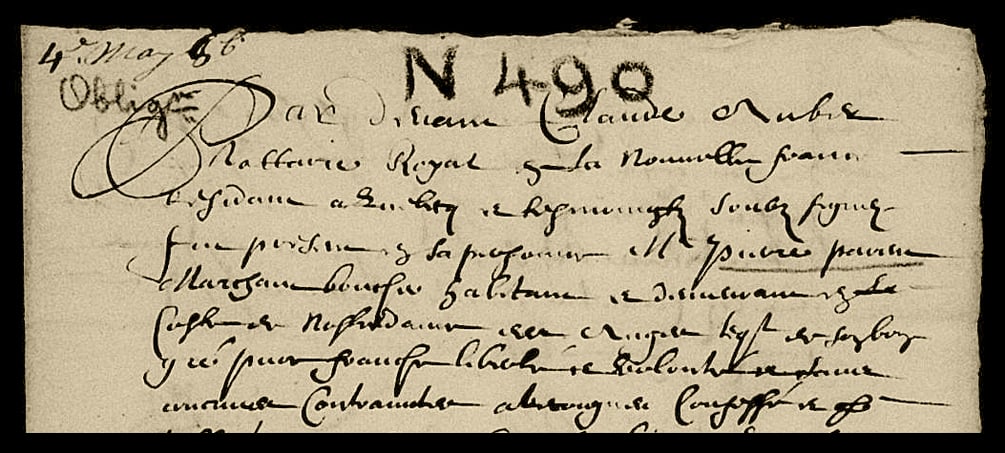 4e May 66
N 490
Obligon
Par devant Claude Auber
Nottaire Royal en la Nouvelle france
Residant a Quebecq et tesmoingtz soubz signez
fut present en sa personne Mr pierre parent
Marchant boucher habitant et demeurant en la
Coste de Nostre dame des Anges leql de son bon
gré pure franche liberté et volonté et sans
aucune Contraincte a Recogneu Confessé et